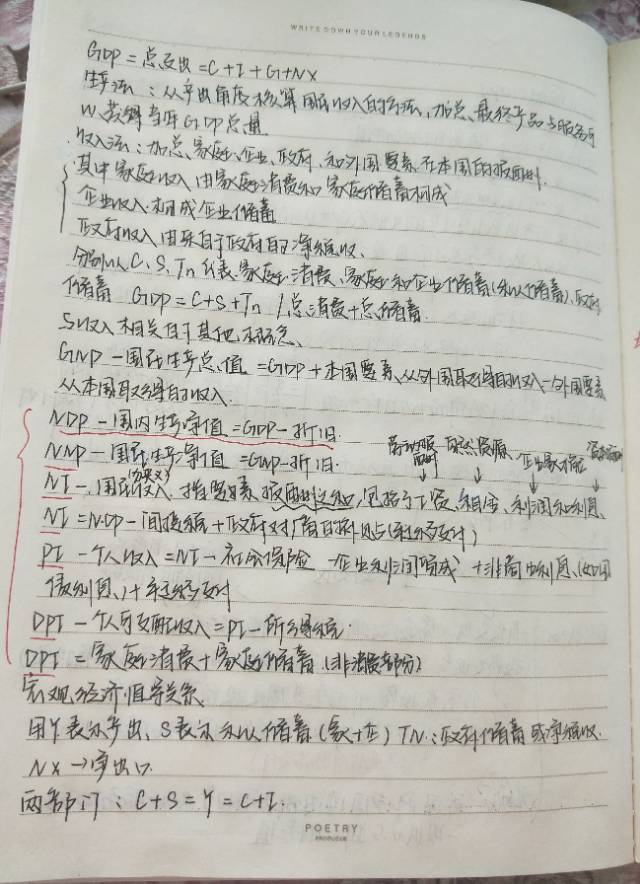 WRITE DOWN YOUR LEGENDS
GDP = 总支出 = C + I + G + NX
生产法：从产出角度核算国民收入的方法，加总最终产品与服务可
以获得当年GDP总量
收入法：加总家庭、企业、政府和外国要素在本国的报酬
其中家庭收入由家庭消费和家庭储蓄构成
企业收入构成企业储蓄
政府收入由来自于政府的净税收、
分别以C、S、Tn代表家庭消费、家庭和企业储蓄(私人储蓄)、政府
储蓄 GDP = C+S+Tn / 总消费+总储蓄
5收入相关的其他概念、
GNP－国民生产总值 = GDP + 本国要素从外国取得的收入－外国要素
从本国取得的收入
NDP－国内生产净值 = GDP－折旧
NNP－国民生产净值 = GNP－折旧
劳动报酬 自然资源 企业家才能
(狭义)
NI－国民收入 指要素报酬之和，包括了工资、租金、利润和利息
NI = NDP－间接税+政府对厂商的补贴(转移支付)
PI－个人收入=NI－社会保险－企业利润留成+非商业利息(如国
债利息)+转移支付
DPI－个人可支配收入=PI－所得税
DPI = 家庭消费+家庭储蓄(非消费部分)
宏观经济恒等关系
用Y表示产出、S表示私人储蓄(家+企) TN：政府储蓄或净税收
NX → 净出口
两部门：C+S=Y=C+I
POETRY